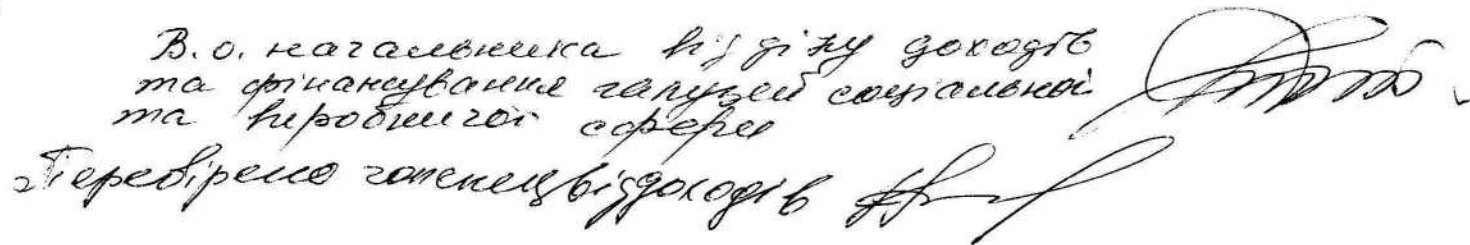 В.о. начальника відділу доходів
та фінансування галузей соціальної
та виробничої сфери
Перевірено від доходів